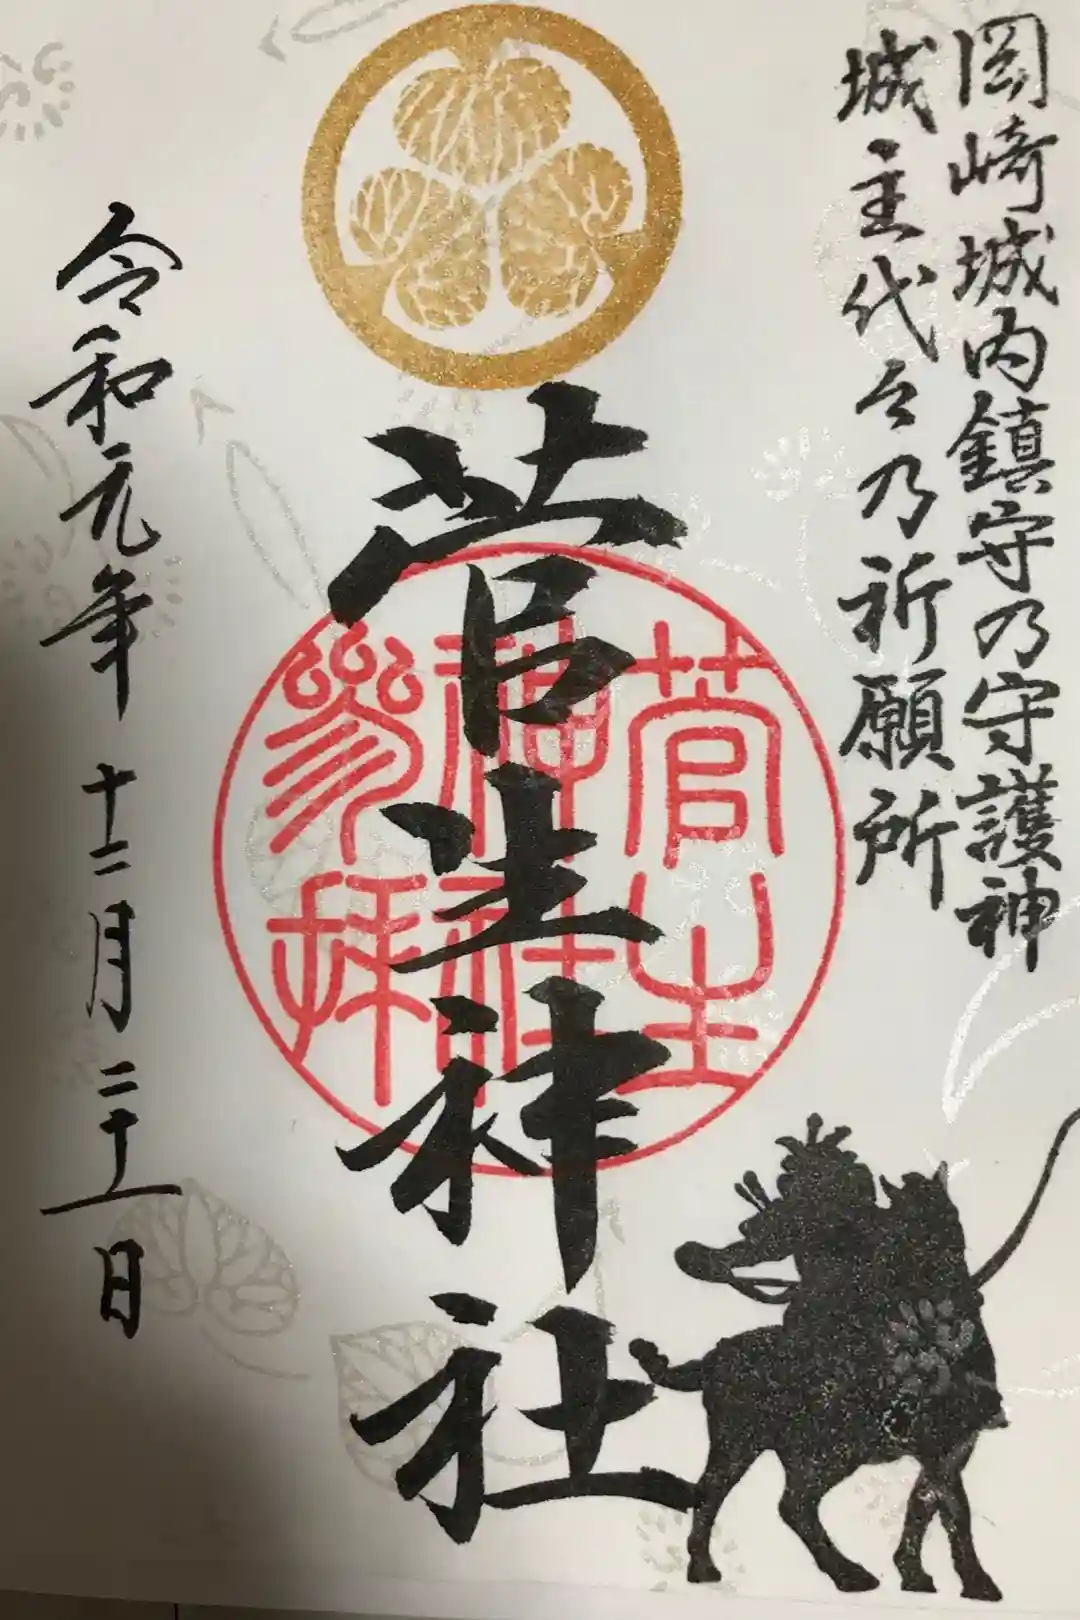 岡崎城内鎮守乃守護神
城主代々乃祈願所
菅生神社
菅生
神社
参拝
令和元年十二月二十一日